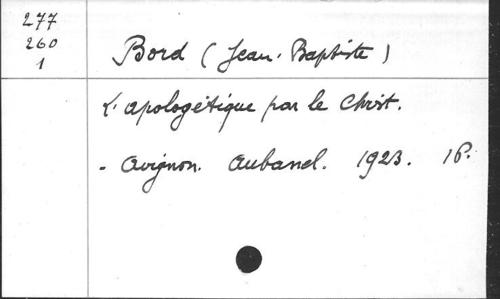 277
260
1
Bord (Jean-Baptiste)
L'apologétique par le Christ.
- Avignon. Aubanel. 1923. 16º.